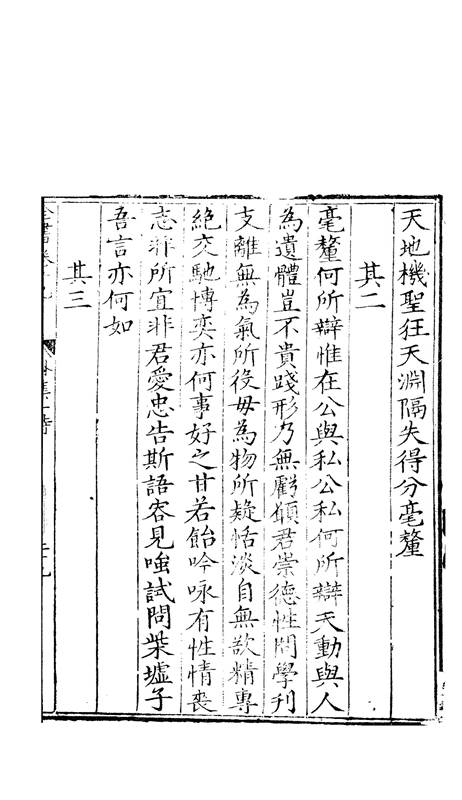 天地機聖狂天淵隔失得分毫釐
其二
毫釐何所辯惟在公與私公私何所辯天動與人
為遺體豈不貴踐形乃無虧願君崇德性問學刋
支離無為氣所役毋為物所疑恬淡自無欲精專
絶交馳博奕亦何事好之甘若飴吟咏有性情喪
志非所宜非君愛忠告斯語容見嗤試問柴墟子
吾言亦何如
其三